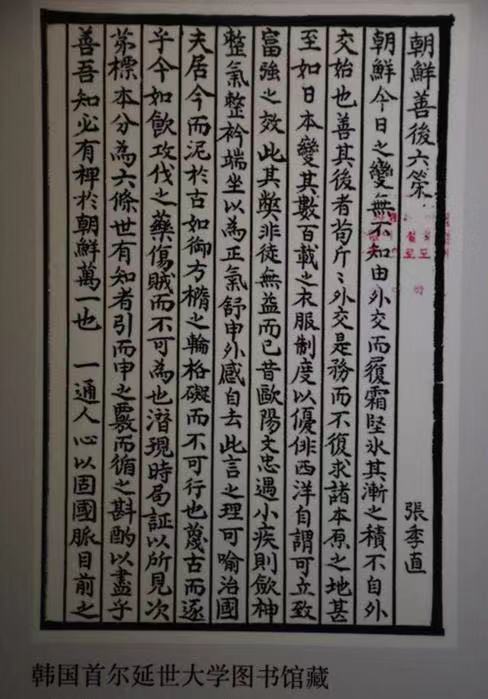 朝鮮善後六策
張季直
朝鮮今日之變無不知由外交而履霜堅氷其漸之積不自外
交始也善其後者苟斤〻外交是務而不復求諸本原之地甚
至如日本變其數百載之衣服制度以優俳西洋自謂可立致
富強之效此其獘非徒無益而已昔歐陽文忠遇小疾則歛神
整氣整衿端坐以為正氣舒申外感自去此言之理可喻治國
夫居今而泥於古如御方橢之輪格礙而不可行也蔑古而逐
乎今如飲攻伐之藥傷賊而不可為也潛現時局証以所見次
苐標本分為六條世有知者引而申之覈而循之斟酌以盡乎
善吾知必有裨於朝鮮萬一也　一通人心以固國脈目前之
韩国首尔延世大学图书馆藏